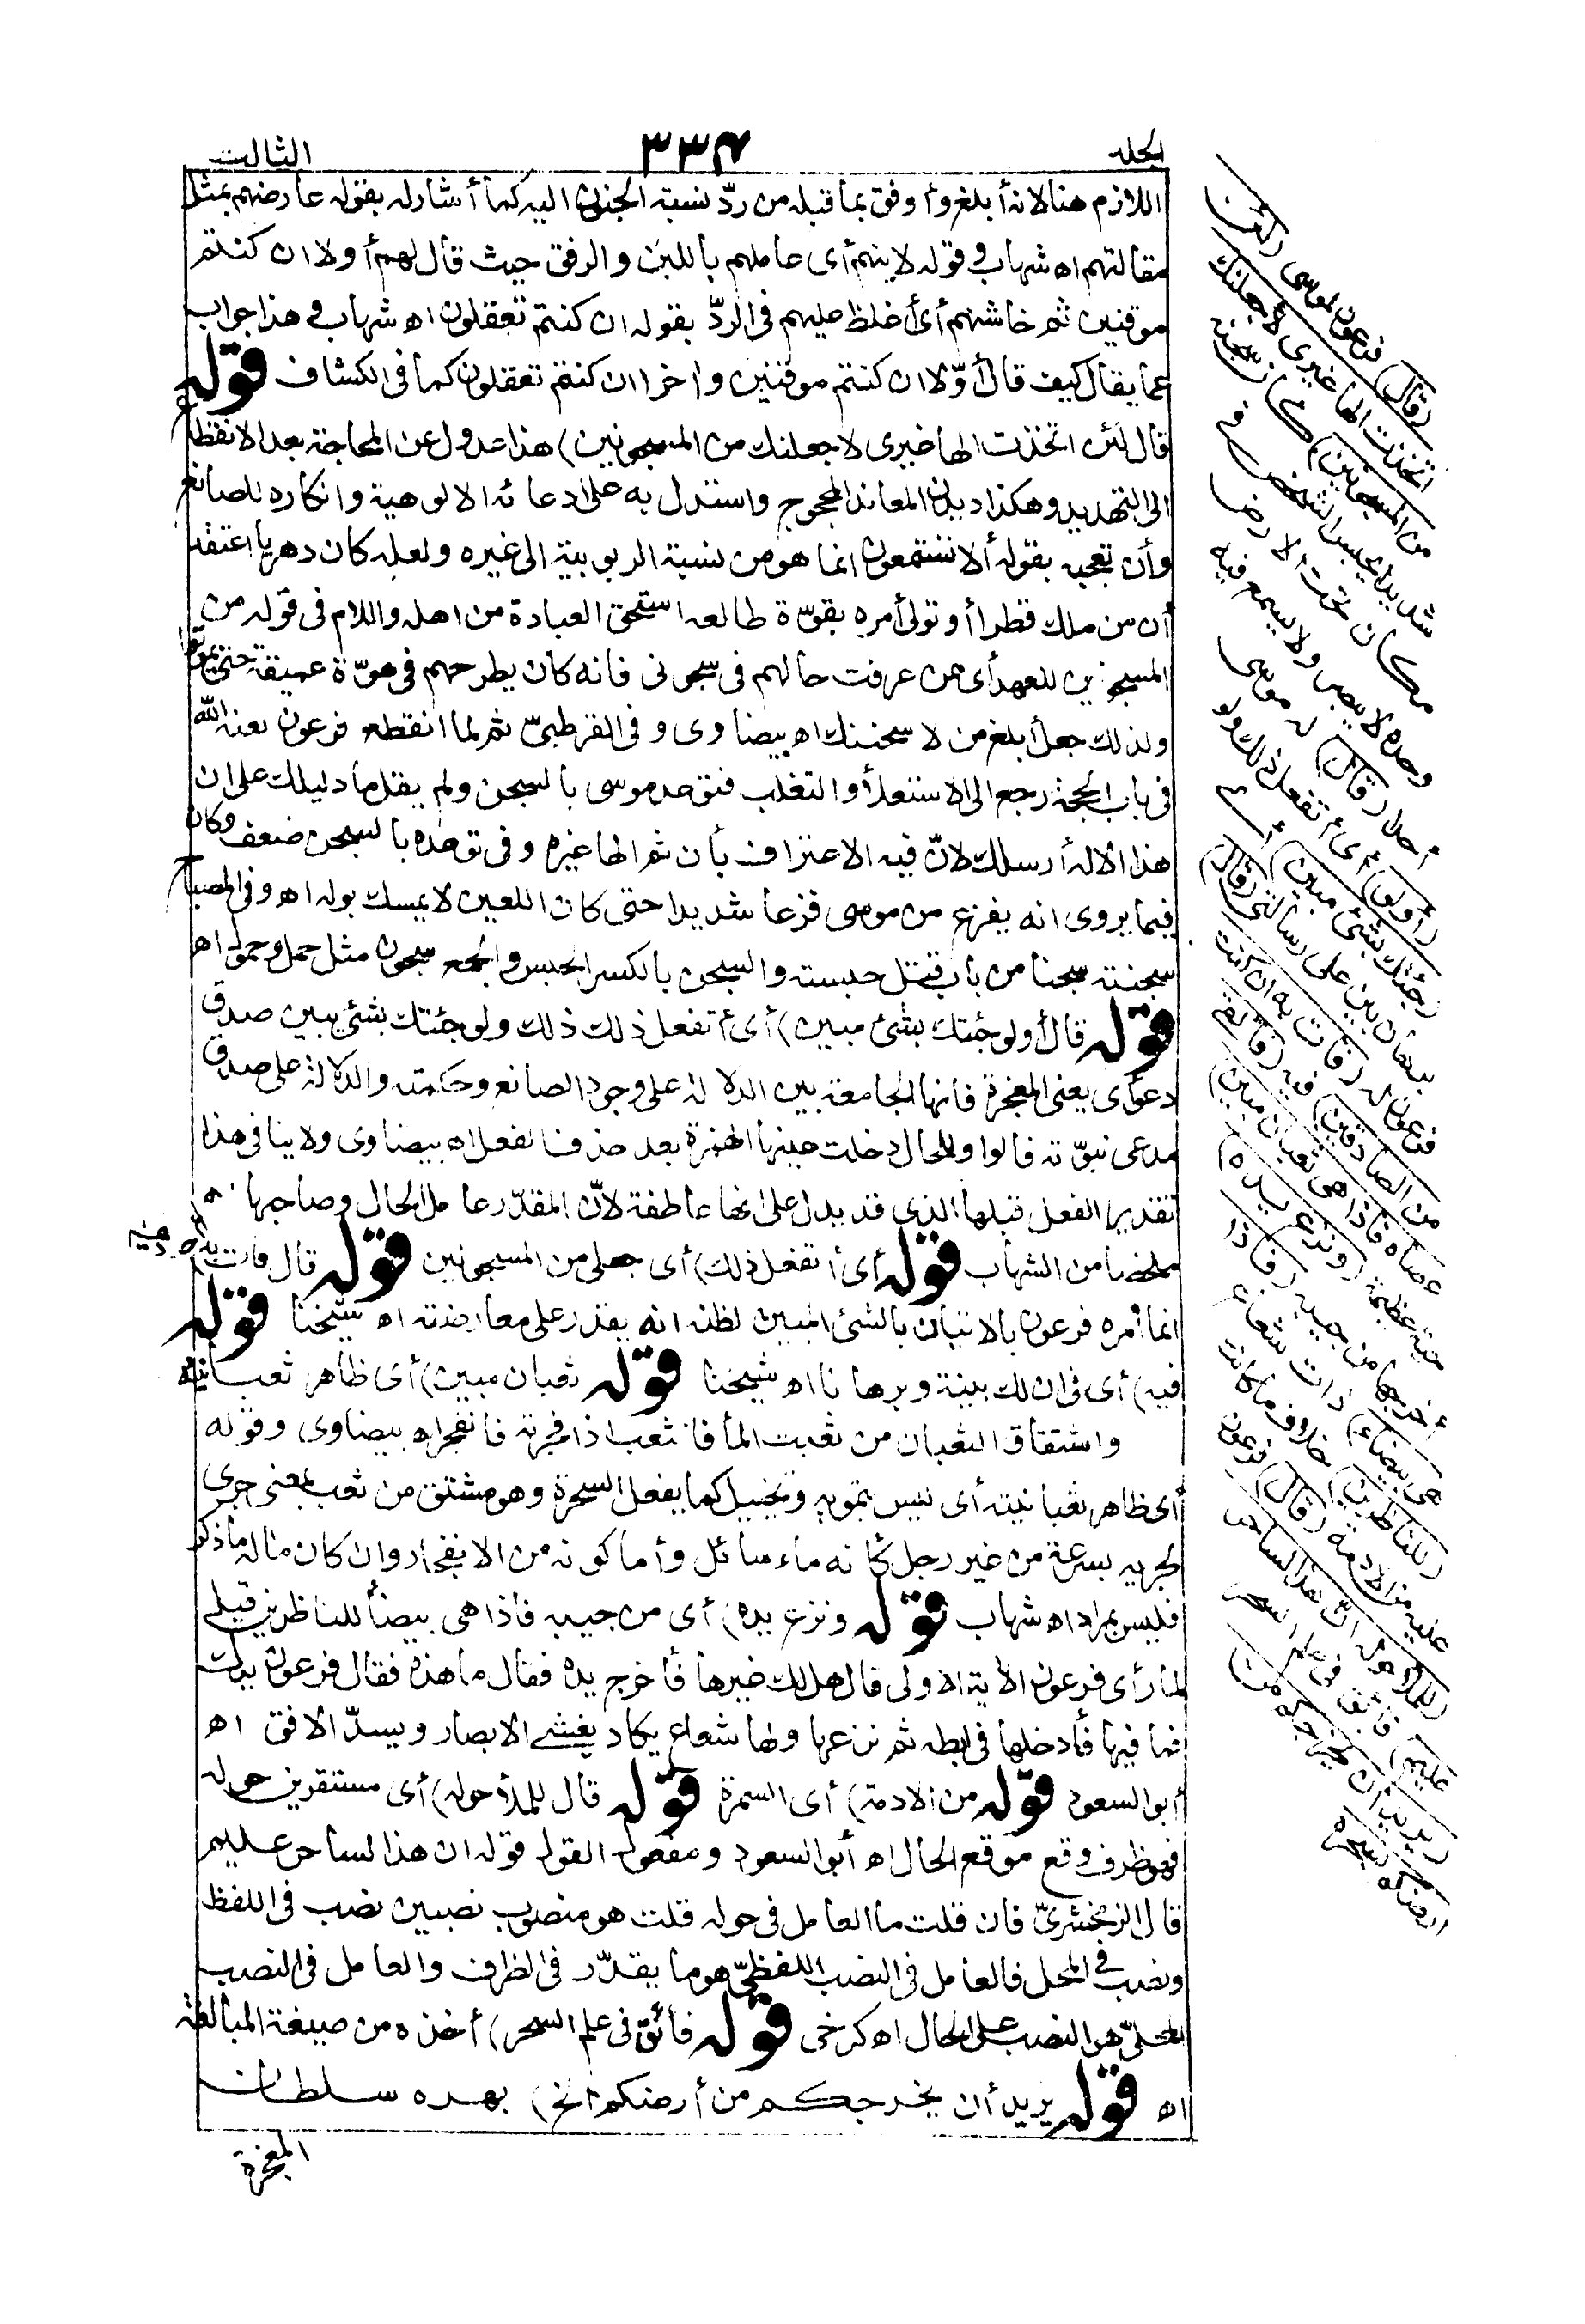 الجلد
٣٣٤
الثالث
اللازم هنا لانه أبلغ وأوفق بما قبله من ردّ نسبة الجنون اليه كما أشار له بقوله عارضهم بمثل
مقالتهم اه شهاب وفى قوله لاينهم أى عاملهم باللين والرفق حيث قال لهم أولا ان كنتم
موقنين ثم خاشنهم أى أغلظ عليهم فى الردّ بقوله ان كنتم تعقلون اه شهاب وهذا جواب
عما يقال كيف قال أوّلا ان كنتم موقنين واخرا ان كنتم تعقلون كما فى الكشاف قوله
قال لئن اتخذت الها غيرى لاجعلنك من المسجونين) هذا عدول عن المحاجة بعد الانقطاع
الى التهديد وهكذا ديدن المعاند المحجوج واستدل به على ادعائه الالوهية وانكاره للصانع
وأن تعجبه بقوله ألا تستمعون انما هو من نسبة الربوبية الى غيره ولعله كان دهريا اعتقد
أن من ملك قطرا أو تولى أمره بقوّة طالعه استحق العبادة من اهله واللام فى قوله من
المسجونين للعهد أى ممن عرفت حالهم فى سجونى فانه كان يطرحهم فى هوّة عميقة حتى يموتوا
ولذلك جعل أبلغ من لاسجننك اه بيضاوى وفى القرطبىّ ثم لما انقطع فرعون لعنه الله
فى باب الحجة رجع الى الاستعلاء والتغلب فتوعد موسى بالسجن ولم يقل ما دليلك على ان
هذا الاله أرسلك لانّ فيه الاعتراف بأن ثم الها غيره وفى توعده بالسجن ضعف وكان
فيما يروى انه يفزع من موسى فزعا شديدا حتى كان اللعين لا يمسك بوله اه وفى المصباح
سجنته سجنا من باب قتل حبسته والسجن بالكسر الحبس والجمع سجون مثل حمل وحمول اه
قوله قال أولو جئتك بشئ مبين) أى أتفعل ذلك ولو جئتك بشئ يبين صدق
دعواى يعنى المعجزة فانها الجامعة بين الدلالة على وجود الصانع وحكمته والدلالة على صدق
مدعى نبوّته فالواو للحال دخلت عليها الهمزة بعد حذف الفعل اه بيضاوى ولا ينافى هذا
تقدير الفعل قبلها الذى قد يدل على انها عاطفة لانّ المقدّر عامل الحال وصاحبها اه
ملخصا من الشهاب قوله أى أتفعل ذلك) أى جعلى من المسجونين قوله قال فأت به
انما أمره فرعون بالاتيان بالشئ المبين لظنه انه يقدر على معارضته اه شيخنا قوله
فيه) أى فى ان لك بينة وبرهانا اه شيخنا قوله ثعبان مبين) أى ظاهر ثعبانيته
واشتقاق الثعبان من ثعبت الماء فانثعب اذا فجرته فانفجر اه بيضاوى وقوله
أى ظاهر ثعبانيته أى ليس بتمويه وتخييل كما يفعل السحرة وهو مشتق من ثعب بمعنى جرى
لجريه بسرعة من غير رجل كأنه ماء سائل وأما كونه من الانفجار وان كان مآله ما ذكر
فليس بمراد اه شهاب قوله ونزع يده) أى من جيبه فاذا هى بيضاء للناظرين قيل
لما رأى فرعون الآية الاولى قال هل لك غيرها فأخرج يده فقال ما هذه فقال فرعون يدك
فما فيها فأدخلها فى ابطه ثم نزعها ولها شعاع يكاد يغشى الابصار ويسدّ الافق اه
أبو السعود قوله من الادمة) أى السمرة قوله قال للملأ حوله) أى مستقرين حوله
فهو ظرف وقع موقع الحال اه أبو السعود ومفعول القول قوله ان هذا لساحر عليم
قال الزمخشرىّ فان قلت ما العامل فى حوله قلت هو منصوب نصبين نصب فى اللفظ
ونصب فى المحل فالعامل فى النصب اللفظىّ هو ما يقدّر فى الظرف والعامل فى النصب
المحلىّ هو النصب على الحال اه كرخى قوله فائق فى علم السحر) أخذه من صيغة المبالغة
اه قوله يريد أن يخرجكم من أرضكم الخ) بهره سلطان
المعجزة
(قال) فرعون لموسى (لئن
اتخذت الها غيرى لاجعلنك
من المسجونين) كان سجنه
شديدا يحبس الشخص فى
مكان تحت الارض
وحده لا يبصر ولا يسمع فيه
أحدا (قال) له موسى
(أولو) أى أتفعل ذلك ولو
(جئتك بشئ مبين) أى
برهان بين على رسالتى (قال)
فرعون له (فأت به ان كنت
من الصادقين) فيه (فألقى
عصاه فاذا هى ثعبان مبين)
حية عظيمة (ونزع يده)
أخرجها من جيبه (فاذا
هى بيضاء) ذات شعاع
(للناظرين) خلاف ما كانت
عليه من الادمة (قال) فرعون
(للملأ حوله ان هذا لساحر
عليم) فائق فى علم السحر
(يريد أن يخرجكم من
أرضكم بسحره